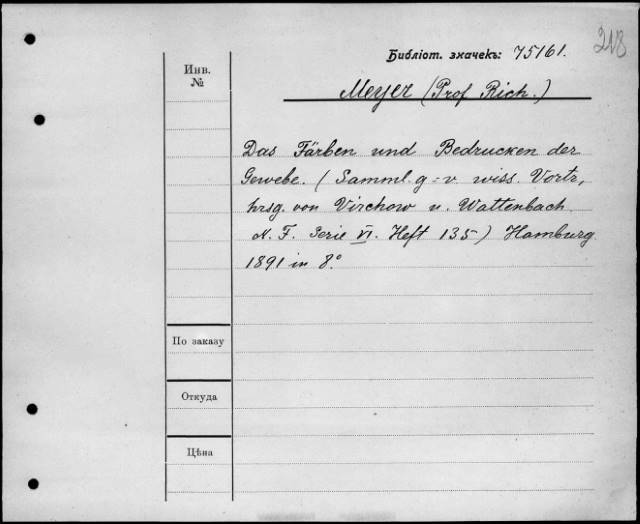 218
Библіот. значекъ: 75161.
Инв.
№
Meyer (Prof Rich.)
Das Färben und Bedrucken der
Gewebe. (Samml. g.-v. wiss. Vortr,
hrsg. von Virchow u. Wattenbach
N. F. Serie VI. Heft 135) Hamburg
1891 in 8°.
По заказу
Откуда
Цѣна